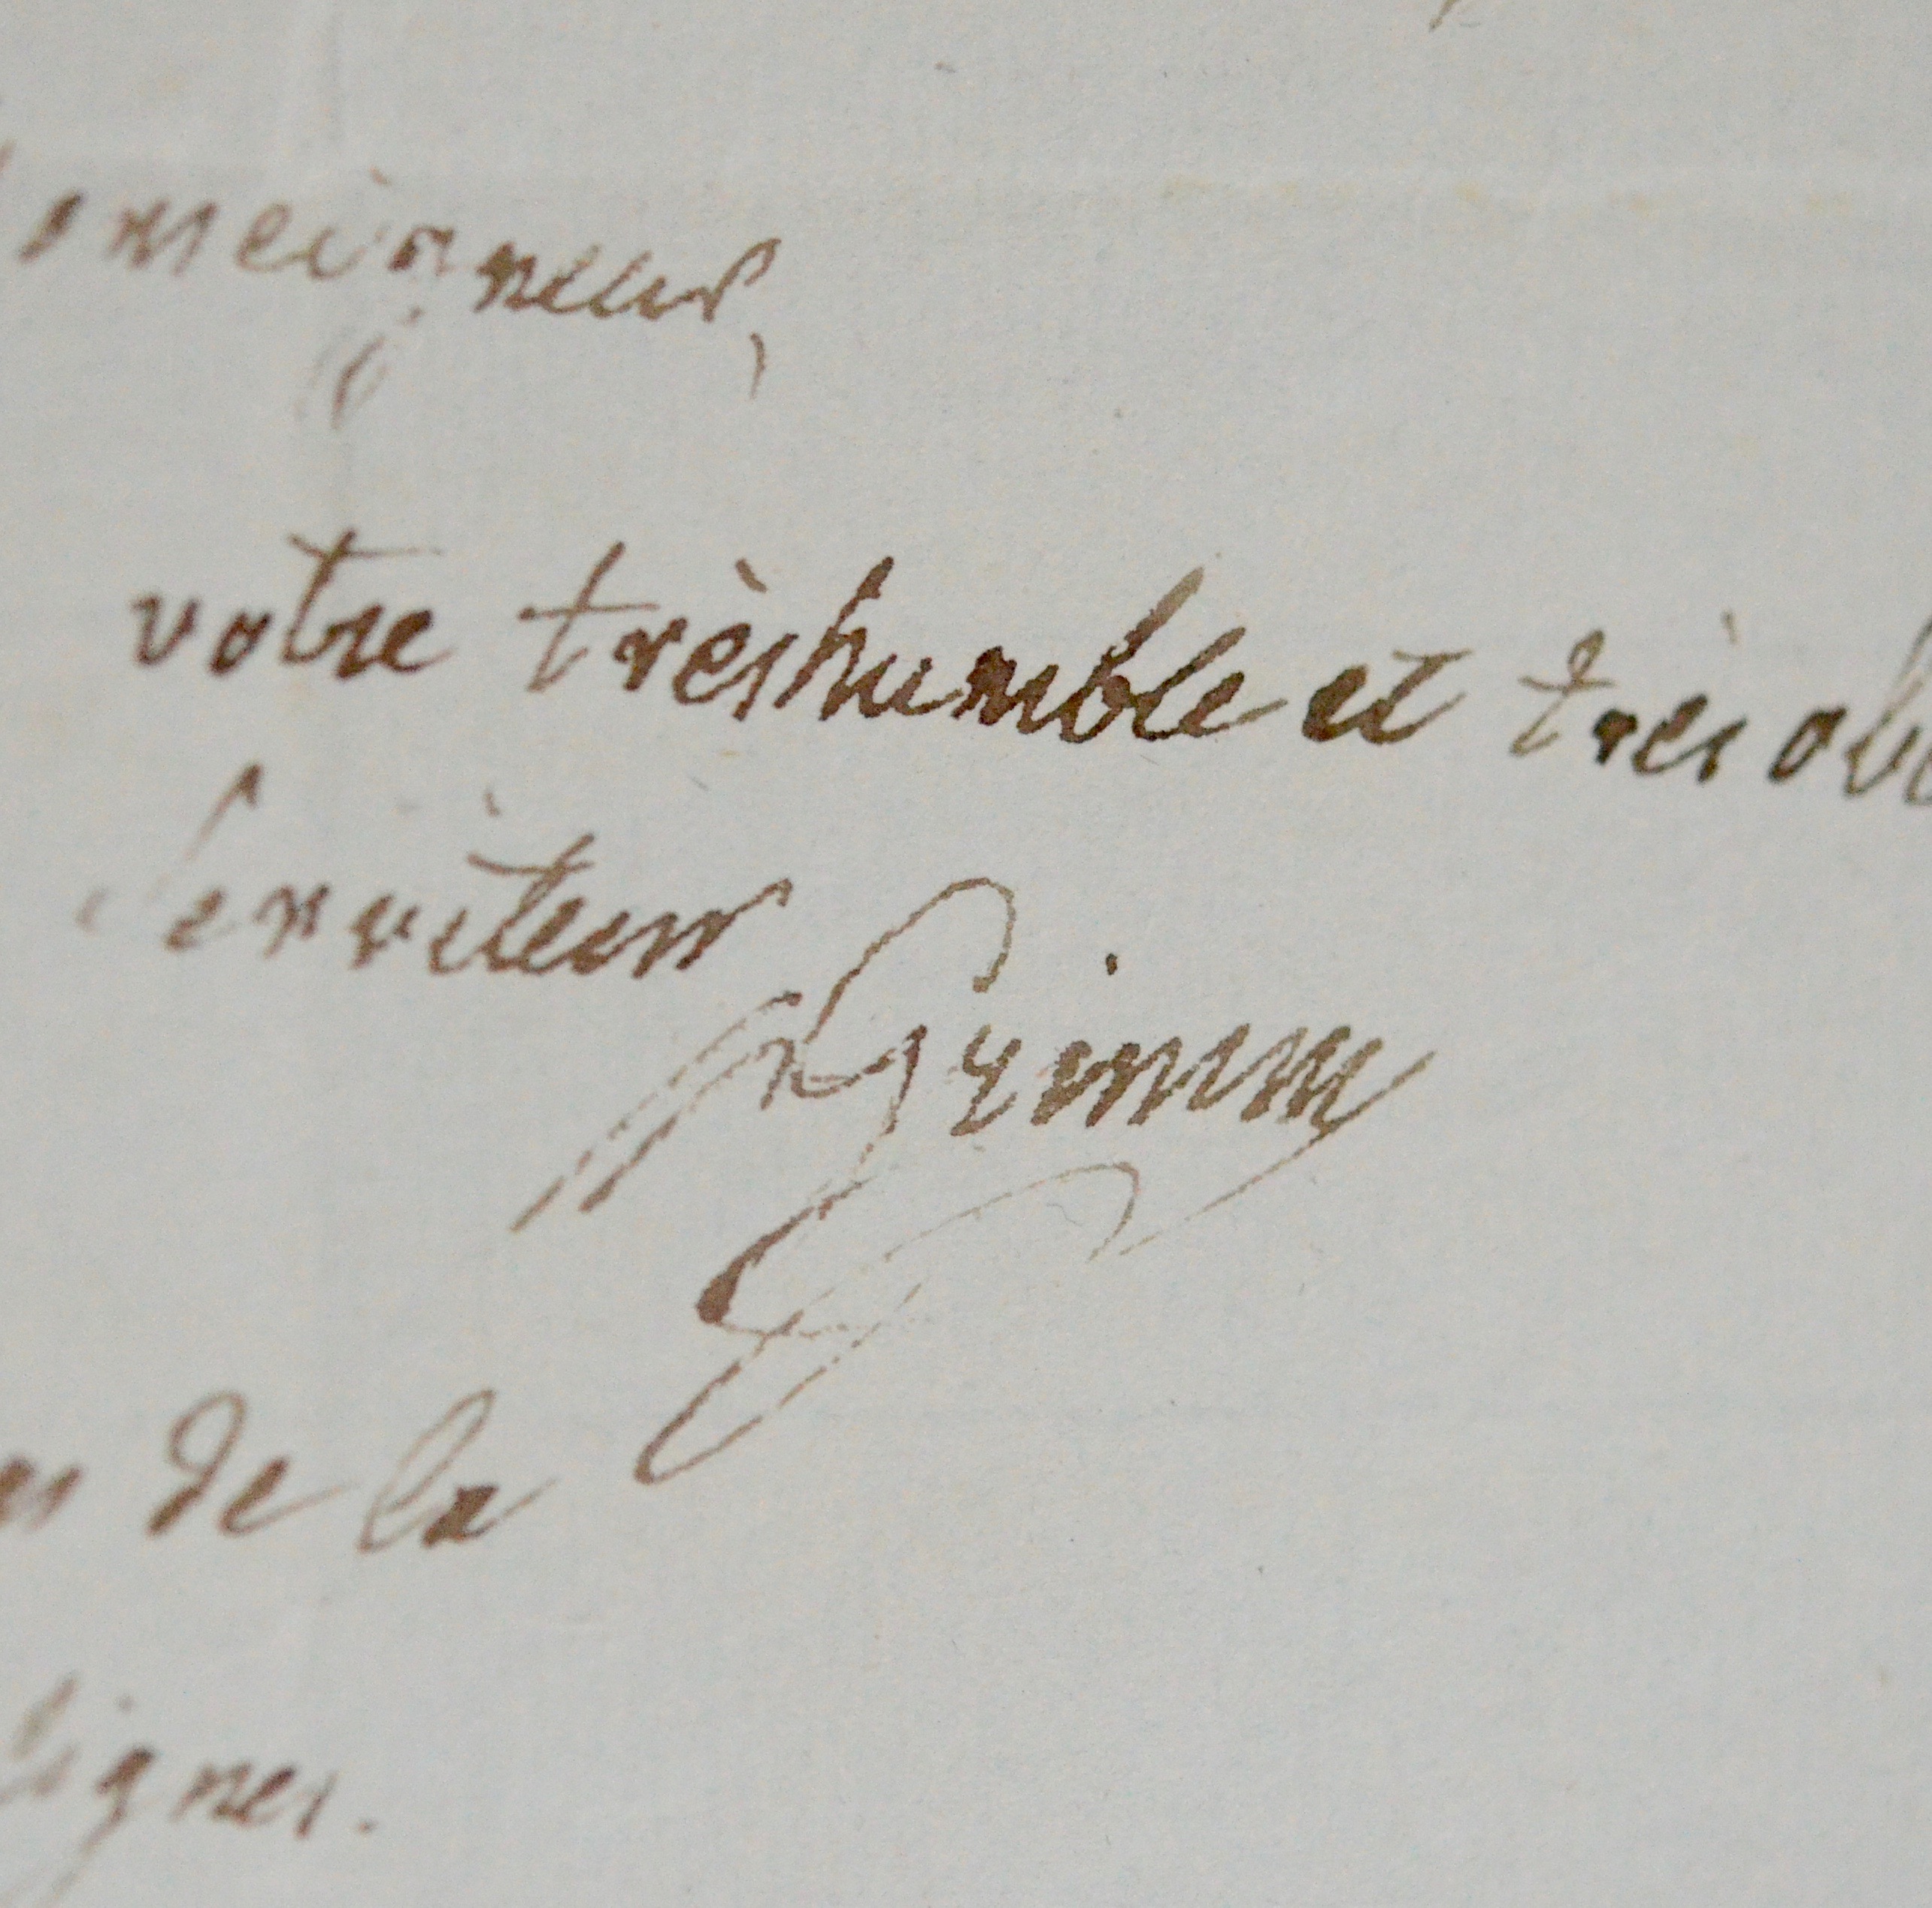 onseigneur,
votre trèshumble et très ob
Serviteur
Grimm
de la
lignes.